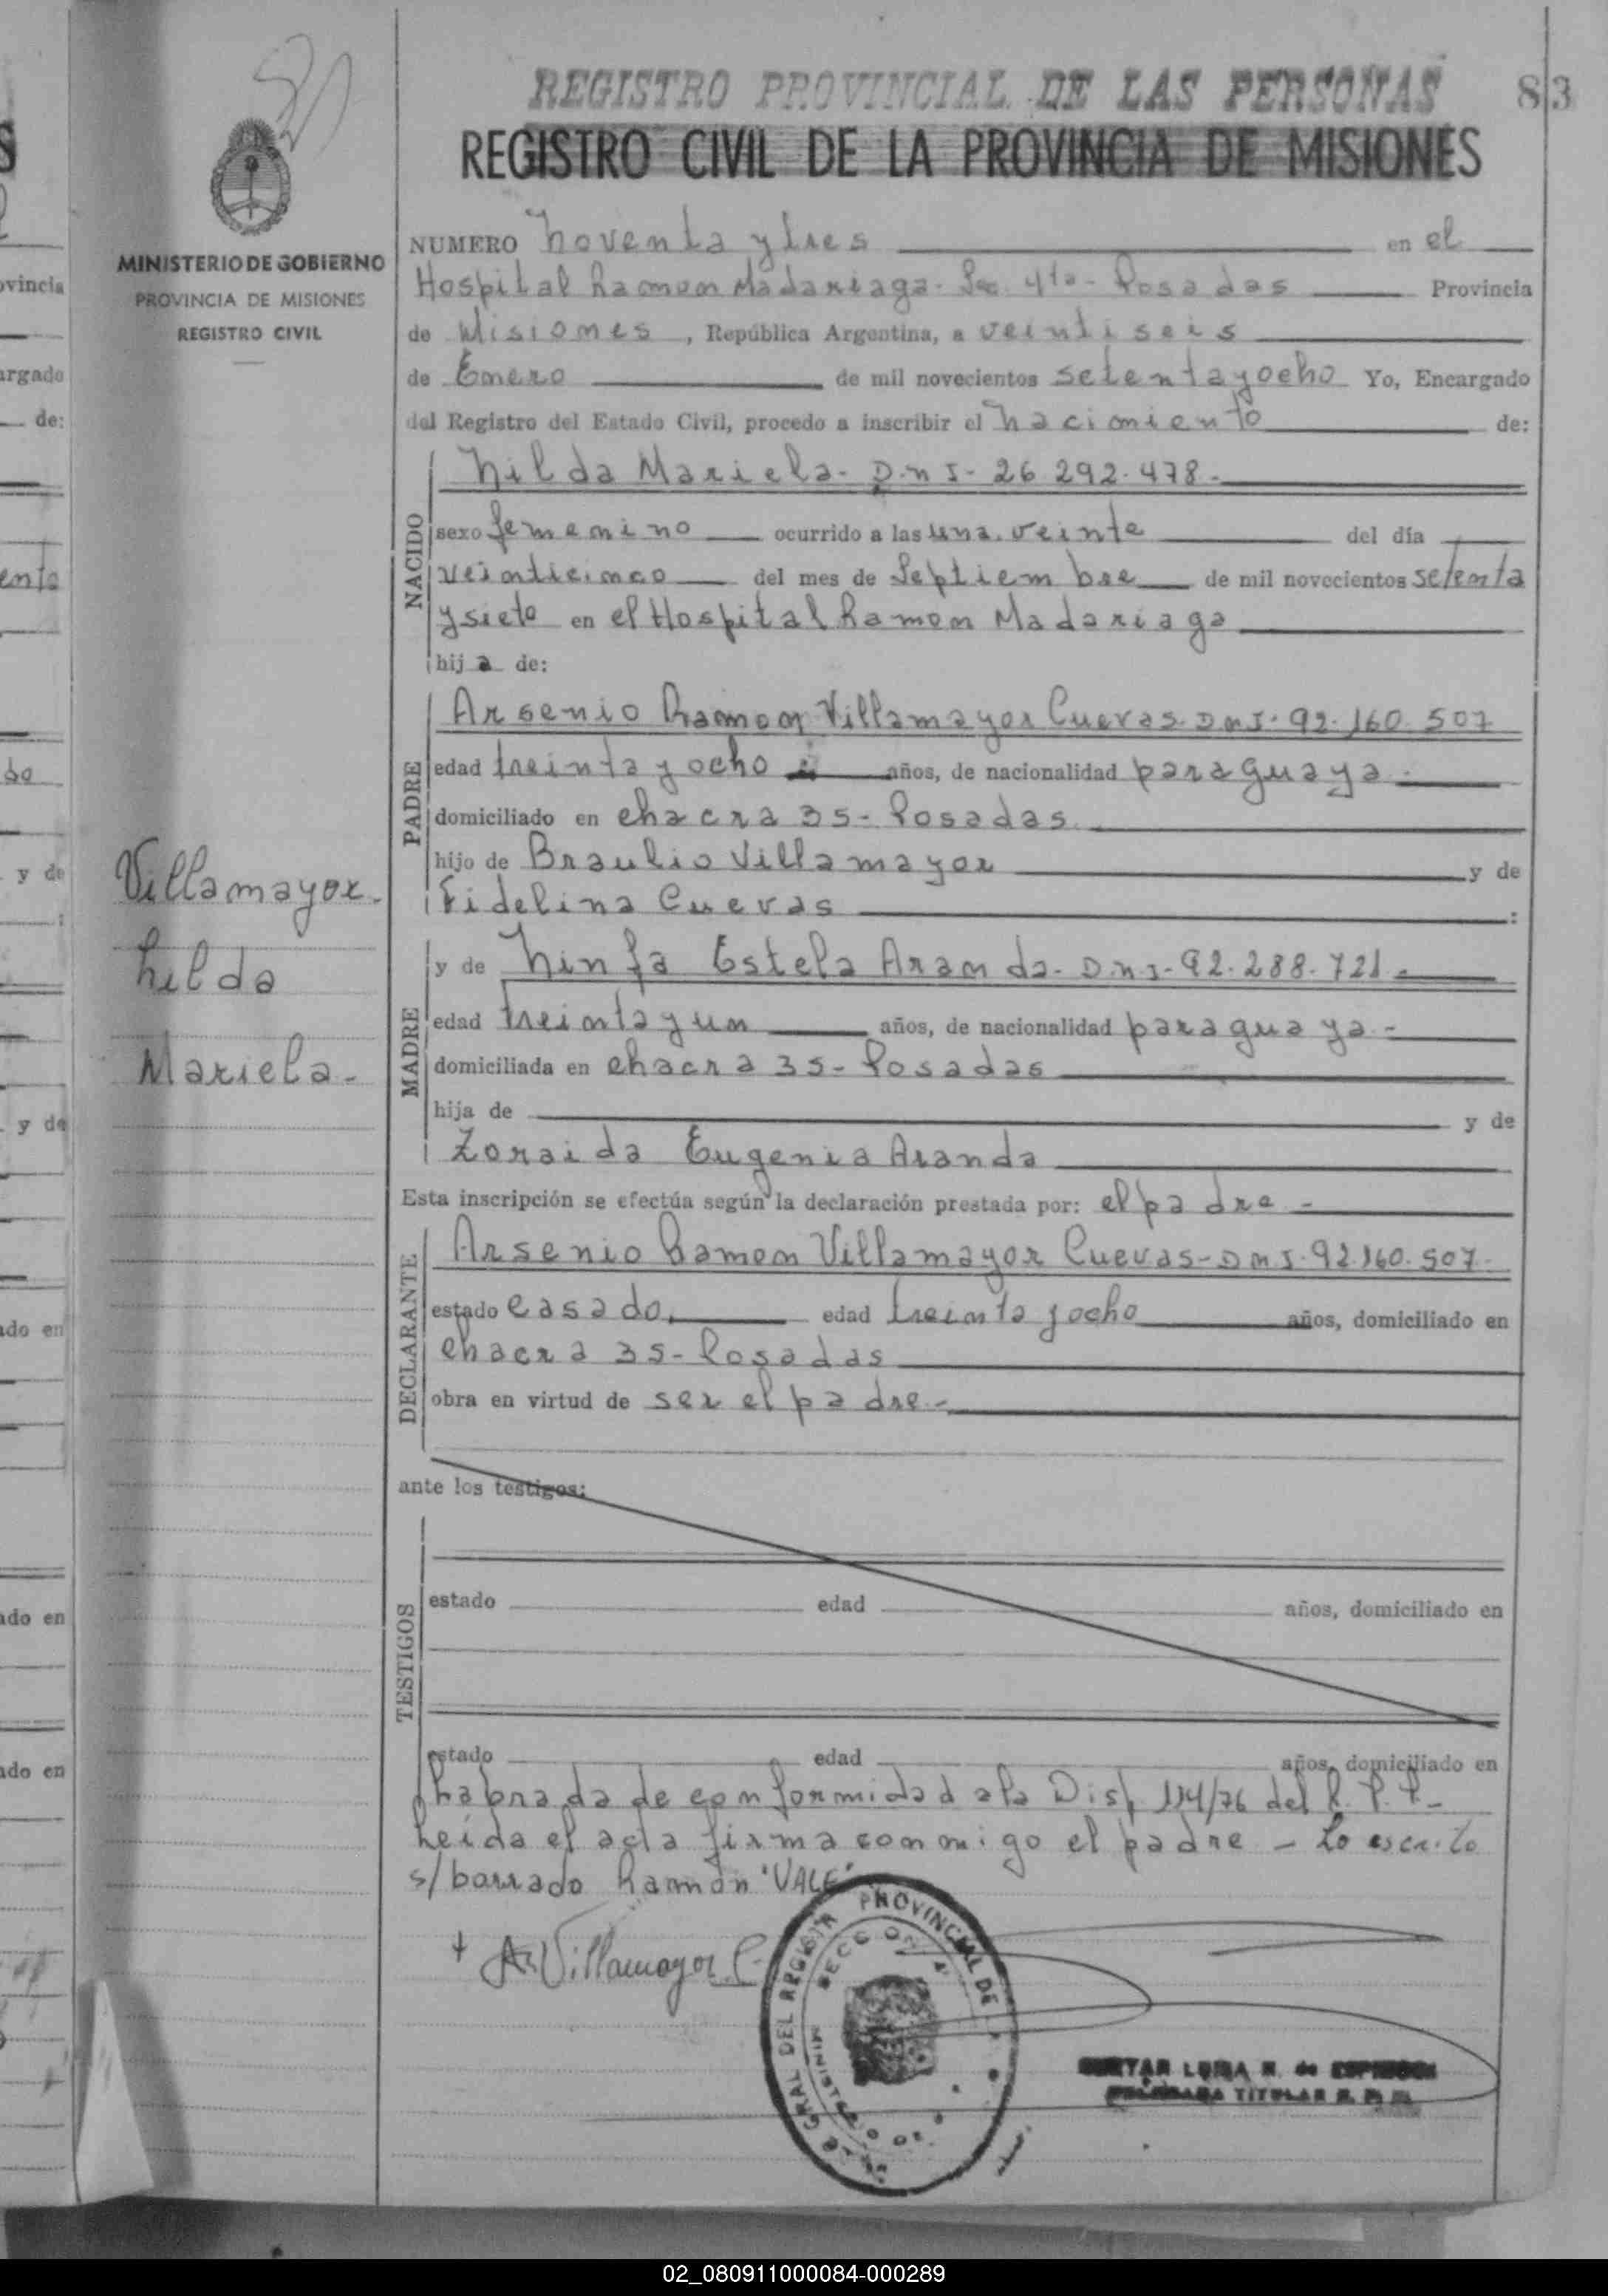 REGISTRO PROVINCIAL DE LAS PERSONAS
83
REGISTRO CIVIL DE LA PROVINCIA DE MISIONES
MINISTERIO DE GOBIERNO
PROVINCIA DE MISIONES
REGISTRO CIVIL
NUMERO Noventa y tres en el
Hospital Ramon Madariaga - Sec. 4ta - Posadas Provincia
de Misiones, República Argentina, a veintiseis
de Enero de mil novecientos setenta y ocho Yo, Encargado
del Registro del Estado Civil, procedo a inscribir el nacimiento de:
NACIDO
Nilda Mariela - D.N.I - 26.292.478.-
sexo femenino ocurrido a las una. veinte del día
veinticinco del mes de Septiembre de mil novecientos setenta
y siete en el Hospital Ramon Madariaga
hija de:
PADRE
Arsenio Ramon Villamayor Cuevas. D.N.I. 92.160.507
edad treinta y ocho años, de nacionalidad paraguaya.-
domiciliado en chacra 35 - Posadas.
hijo de Braulio Villamayor y de
Fidelina Cuevas :
Villamayor.
Nilda
Mariela-
MADRE
y de Ninfa Estela Aranda - D.N.I - 92.288.721.-
edad treinta y un años, de nacionalidad paraguaya.-
domiciliada en chacra 35 - Posadas
hija de y de
Zoraida Eugenia Aranda
Esta inscripción se efectúa según la declaración prestada por: el padre -
DECLARANTE
Arsenio Ramon Villamayor Cuevas - D.N.I. 92.160.507-
estado casado. edad treinta y ocho años, domiciliado en
chacra 35 - Posadas
obra en virtud de ser el padre.-
ante los testigos:
TESTIGOS
estado edad años, domiciliado en
estado edad años, domiciliado en
Labrada de conformidad a la Disp. 114/76 del R. P. P.-
Leída el acta firma conmigo el padre - Lo escrito
s/ borrado Ramón "VALE"
A. Villamayor C.
GRAL DEL REGISTR PROVINCIAL DE
SECCION
LUISA de
TITULAR
02_080911000084-000289